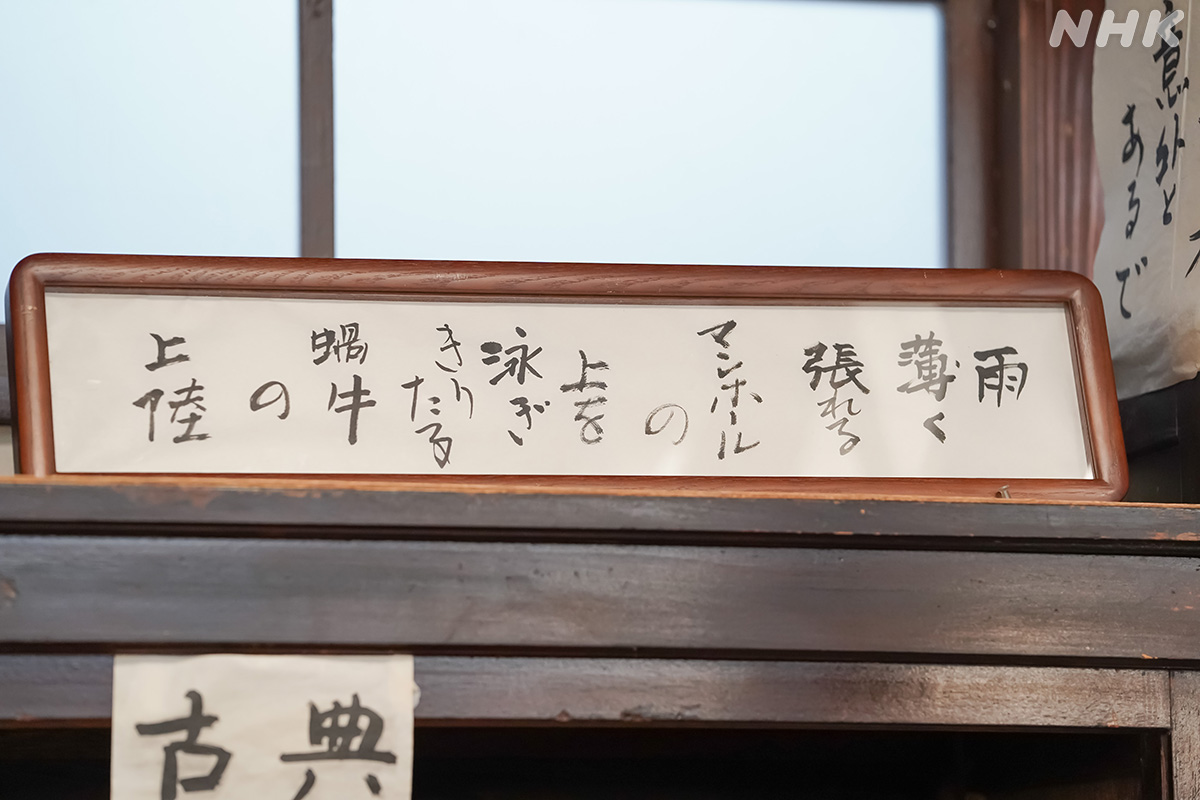 雨
薄く
張れる
マンホール
の
上を
泳ぎ
きり
たる
蝸牛
の
上陸
意外と
あるで
古典
NHK